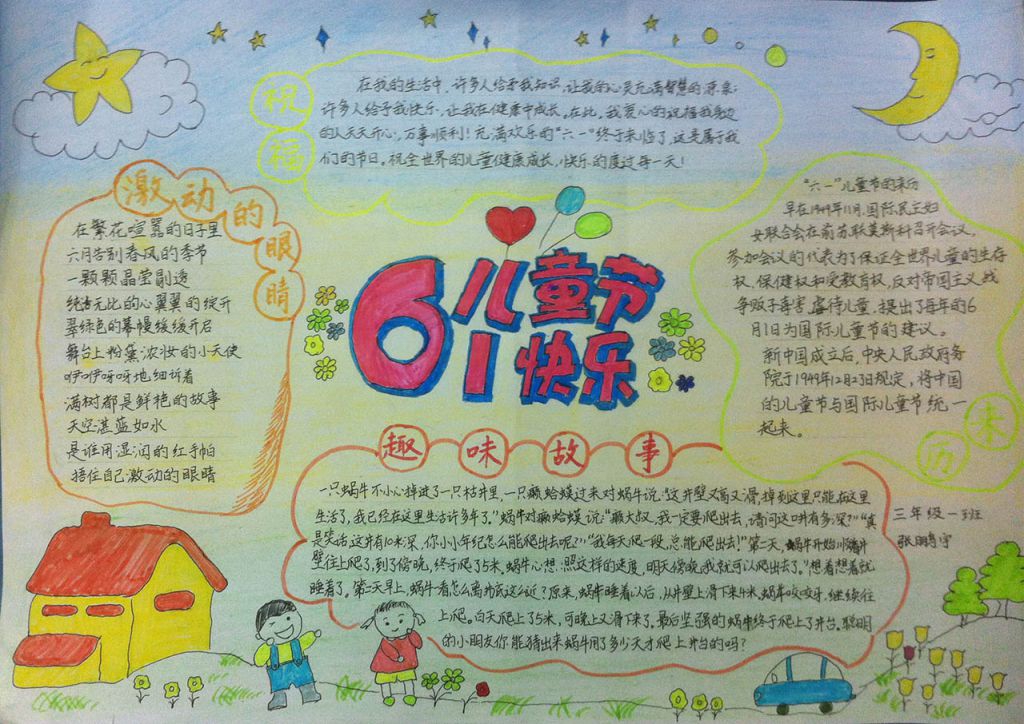 祝福
在我的生活中，许多人给予我知识，让我的心灵充满智慧的源泉；
许多人给予我快乐，让我在健康中成长。在此，我衷心的祝福我身边
的人天天开心，万事顺利！充满欢乐的“六一”终于来临了，这是属于我
们的节日。祝全世界的儿童健康成长，快乐的度过每一天！
激动的眼睛
在繁花喧嚣的日子里
六月告别春风的季节
一颗颗晶莹剔透
纯洁无比的心翼翼的绽开
翠绿色的幕幔缓缓开启
舞台上粉黛浓妆的小天使
咿咿呀呀地细诉着
满树都是鲜艳的故事
天空湛蓝如水
是谁用湿润的红手帕
捂住自己激动的眼睛
61儿童节
快乐
“六一”儿童节的来历
早在1949年11月，国际民主妇
女联合会在前苏联莫斯科召开会议，
参加会议的代表为了保证全世界儿童的生存
权、保健权和受教育权，反对帝国主义战
争贩子毒害、虐待儿童，提出了每年的6
月1日为国际儿童节的建议。
新中国成立后，中央人民政府务
院于1949年12月23日规定，将中国
的儿童节与国际儿童节统一
起来。
来历
趣味故事
一只蜗牛不小心掉进了一只枯井里，一只癞蛤蟆过来对蜗牛说：“这井壁又高又滑，掉到这里只能在这里
生活了，我已经在这里生活许多年了。”蜗牛对癞蛤蟆说：“癞大叔，我一定要爬出去，请问这口井有多深？”“真
是笑话，这井有10米深，你小小年纪怎么能爬出去呢？”“我每天爬一段，总能爬出去！”第二天，蜗牛开始顺着井
壁往上爬了，到了傍晚，终于爬了5米，蜗牛心想：照这样的速度，明天傍晚，我就可以爬出去了。”想着想着就
睡着了。第二天早上，蜗牛看怎么离井底这么近？原来，蜗牛睡着以后，从井壁上滑下来4米，蜗牛咬咬牙，继续往
上爬。白天爬上了5米，可晚上又滑下来了。最后坚强的蜗牛终于爬上了井台。聪明
的小朋友你能猜出来蜗牛用了多少天才爬上井台的吗？
三年级一班